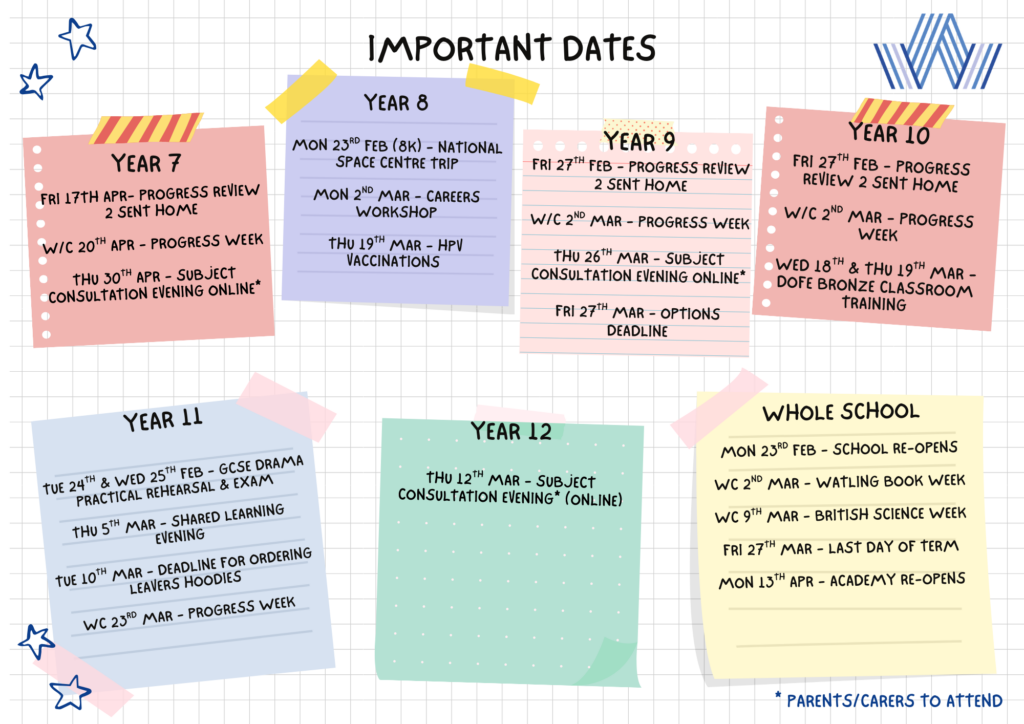 IMPORTANT DATES
YEAR 7
FRI 17TH APR- PROGRESS REVIEW
2 SENT HOME
W/C 20TH APR - PROGRESS WEEK
THU 30TH APR - SUBJECT
CONSULTATION EVENING ONLINE*
YEAR 8
MON 23RD FEB (8K) - NATIONAL
SPACE CENTRE TRIP
MON 2ND MAR - CAREERS
WORKSHOP
THU 19TH MAR - HPV
VACCINATIONS
YEAR 9
FRI 27TH FEB - PROGRESS REVIEW
2 SENT HOME
W/C 2ND MAR - PROGRESS WEEK
THU 26TH MAR - SUBJECT
CONSULTATION EVENING ONLINE*
FRI 27TH MAR - OPTIONS
DEADLINE
YEAR 10
FRI 27TH FEB - PROGRESS
REVIEW 2 SENT HOME
W/C 2ND MAR - PROGRESS
WEEK
WED 18TH & THU 19TH MAR -
DOFE BRONZE CLASSROOM
TRAINING
YEAR 11
TUE 24TH & WED 25TH FEB - GCSE DRAMA
PRACTICAL REHEARSAL & EXAM
THU 5TH MAR - SHARED LEARNING
EVENING
TUE 10TH MAR - DEADLINE FOR ORDERING
LEAVERS HOODIES
WC 23RD MAR - PROGRESS WEEK
YEAR 12
THU 12TH MAR - SUBJECT
CONSULTATION EVENING* (ONLINE)
WHOLE SCHOOL
MON 23RD FEB - SCHOOL RE-OPENS
WC 2ND MAR - WATLING BOOK WEEK
WC 9TH MAR - BRITISH SCIENCE WEEK
FRI 27TH MAR - LAST DAY OF TERM
MON 13TH APR - ACADEMY RE-OPENS
* PARENTS/CARERS TO ATTEND